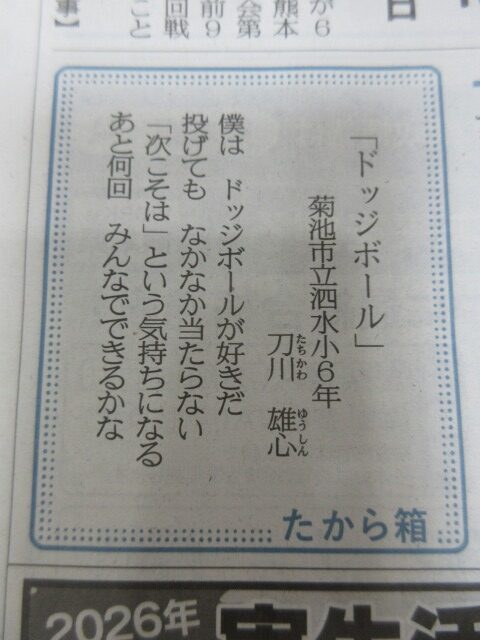 が6
熊本
会第
前9
回戦
こと
事】
日
「ドッジボール」
菊池市立泗水小6年
刀川　雄心
たちかわ　ゆうしん
僕は　ドッジボールが好きだ
投げても　なかなか当たらない
「次こそは」という気持ちになる
あと何回　みんなでできるかな
たから箱
2026年